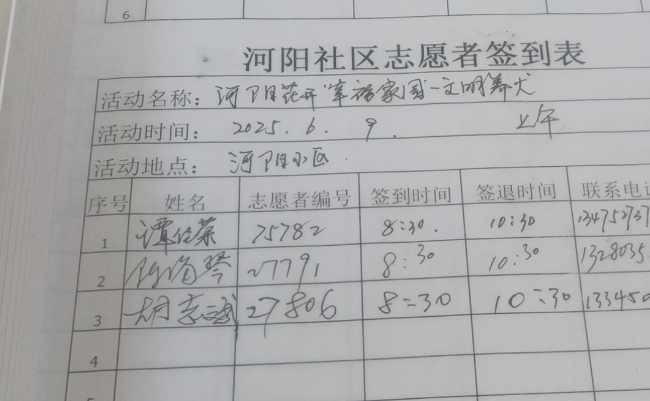 6
河阳社区志愿者签到表
活动名称：河阳花开"幸福家园-文明养犬
活动时间：2025.6.9. 上午
活动地点：河阳小区.
序号 姓名 志愿者编号 签到时间 签退时间 联系电话
1 谭仕荣 75782 8:30. 10:30 134752737
2 琴 27791 8:30 10:30 1328035
3 胡志斌 27806 8:30 10:30 133450
4